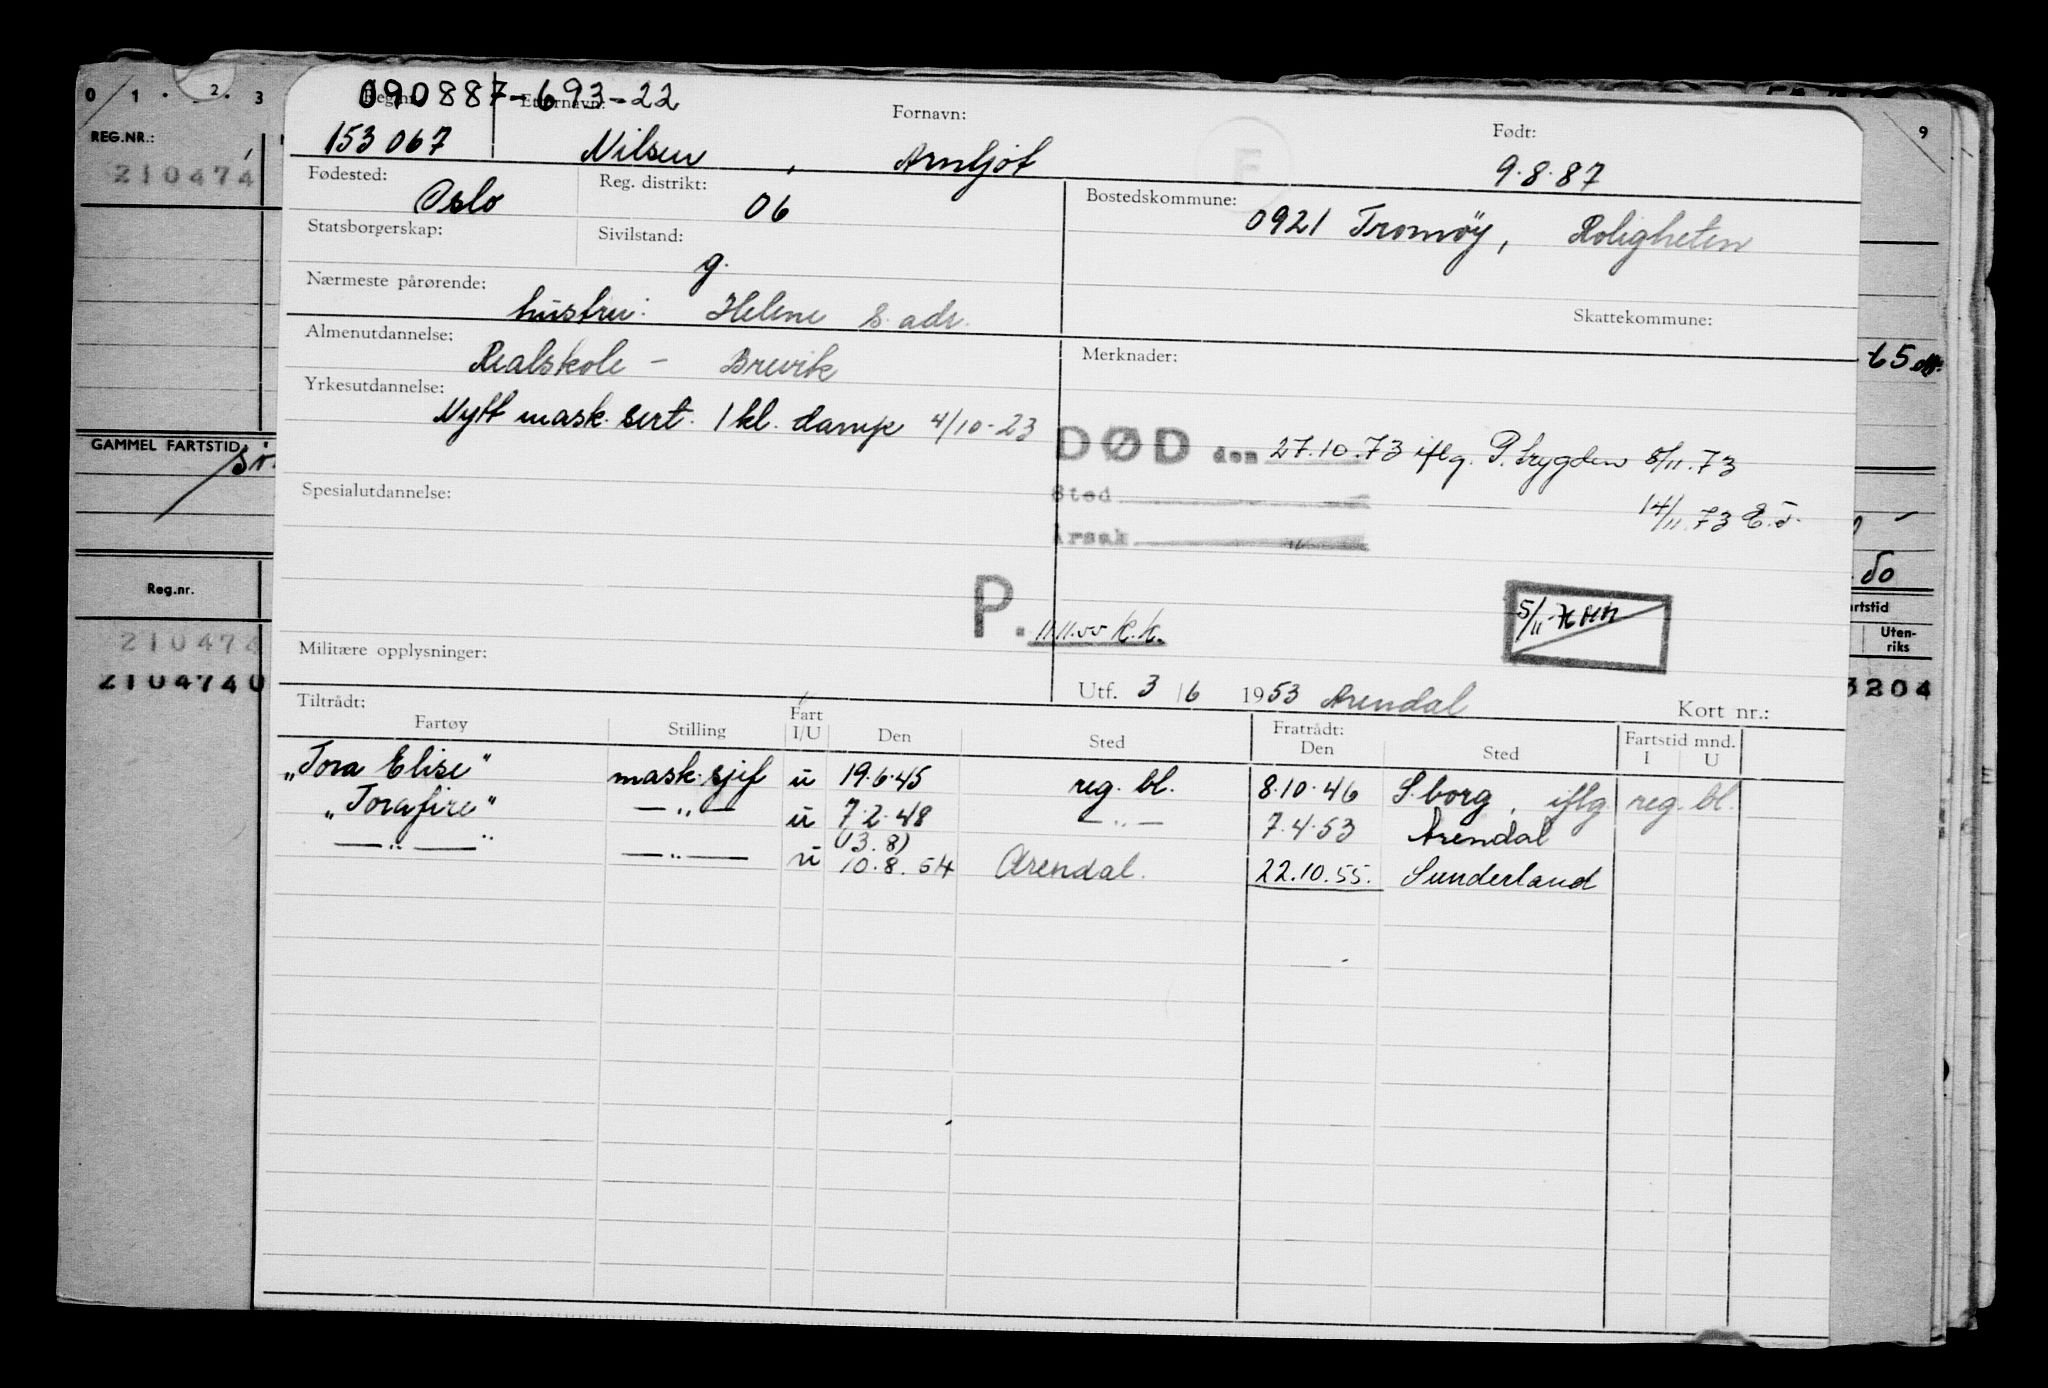 0 1 2 3
9
REG.NR.:
210474
65
GAMMEL FARTSTID
50
Reg.nr.
Uten-
riks
210474
2104740
3204
090887-693-22
Etternavn:
Fornavn:
Født:
153067
Nilsen, Arnljot
9.8.87
Fødested:
Oslo
Reg. distrikt:
06
Bostedskommune:
0921 Tromøy, Roligheten
Statsborgerskap:
Sivilstand:
g.
Nærmeste pårørende:
hustru: Helene s. adr.
Skattekommune:
Almenutdannelse:
Realskole - Brevik
Merknader:
Yrkesutdannelse:
Nytt mask. sert. 1 kl. damp 4/10-23
DØD den 27.10.73 iflg. P.trygden 5/11.73
Sted
14/11.73 E.J.
Årsak
Spesialutdannelse:
P. 11.11.55 K.K.
5/11-
Militære opplysninger:
Utf. 3/6 1953 Arendal
Kort nr.:
Tiltrådt:
Fartøy Stilling Fart I/U Den Sted
Fratrådt:
Den Sted
Fartstid mnd.
I U
"Tora Elise" mask.sjef u 19.6.45 reg. bl. 8.10.46 S.borg, iflg reg. bl.
"Torafire" —"— u 7.2.48 —"— 7.4.53 Arendal
(13.8)
—"— —"— u 10.8.54 Arendal. 22.10.55. Sunderland